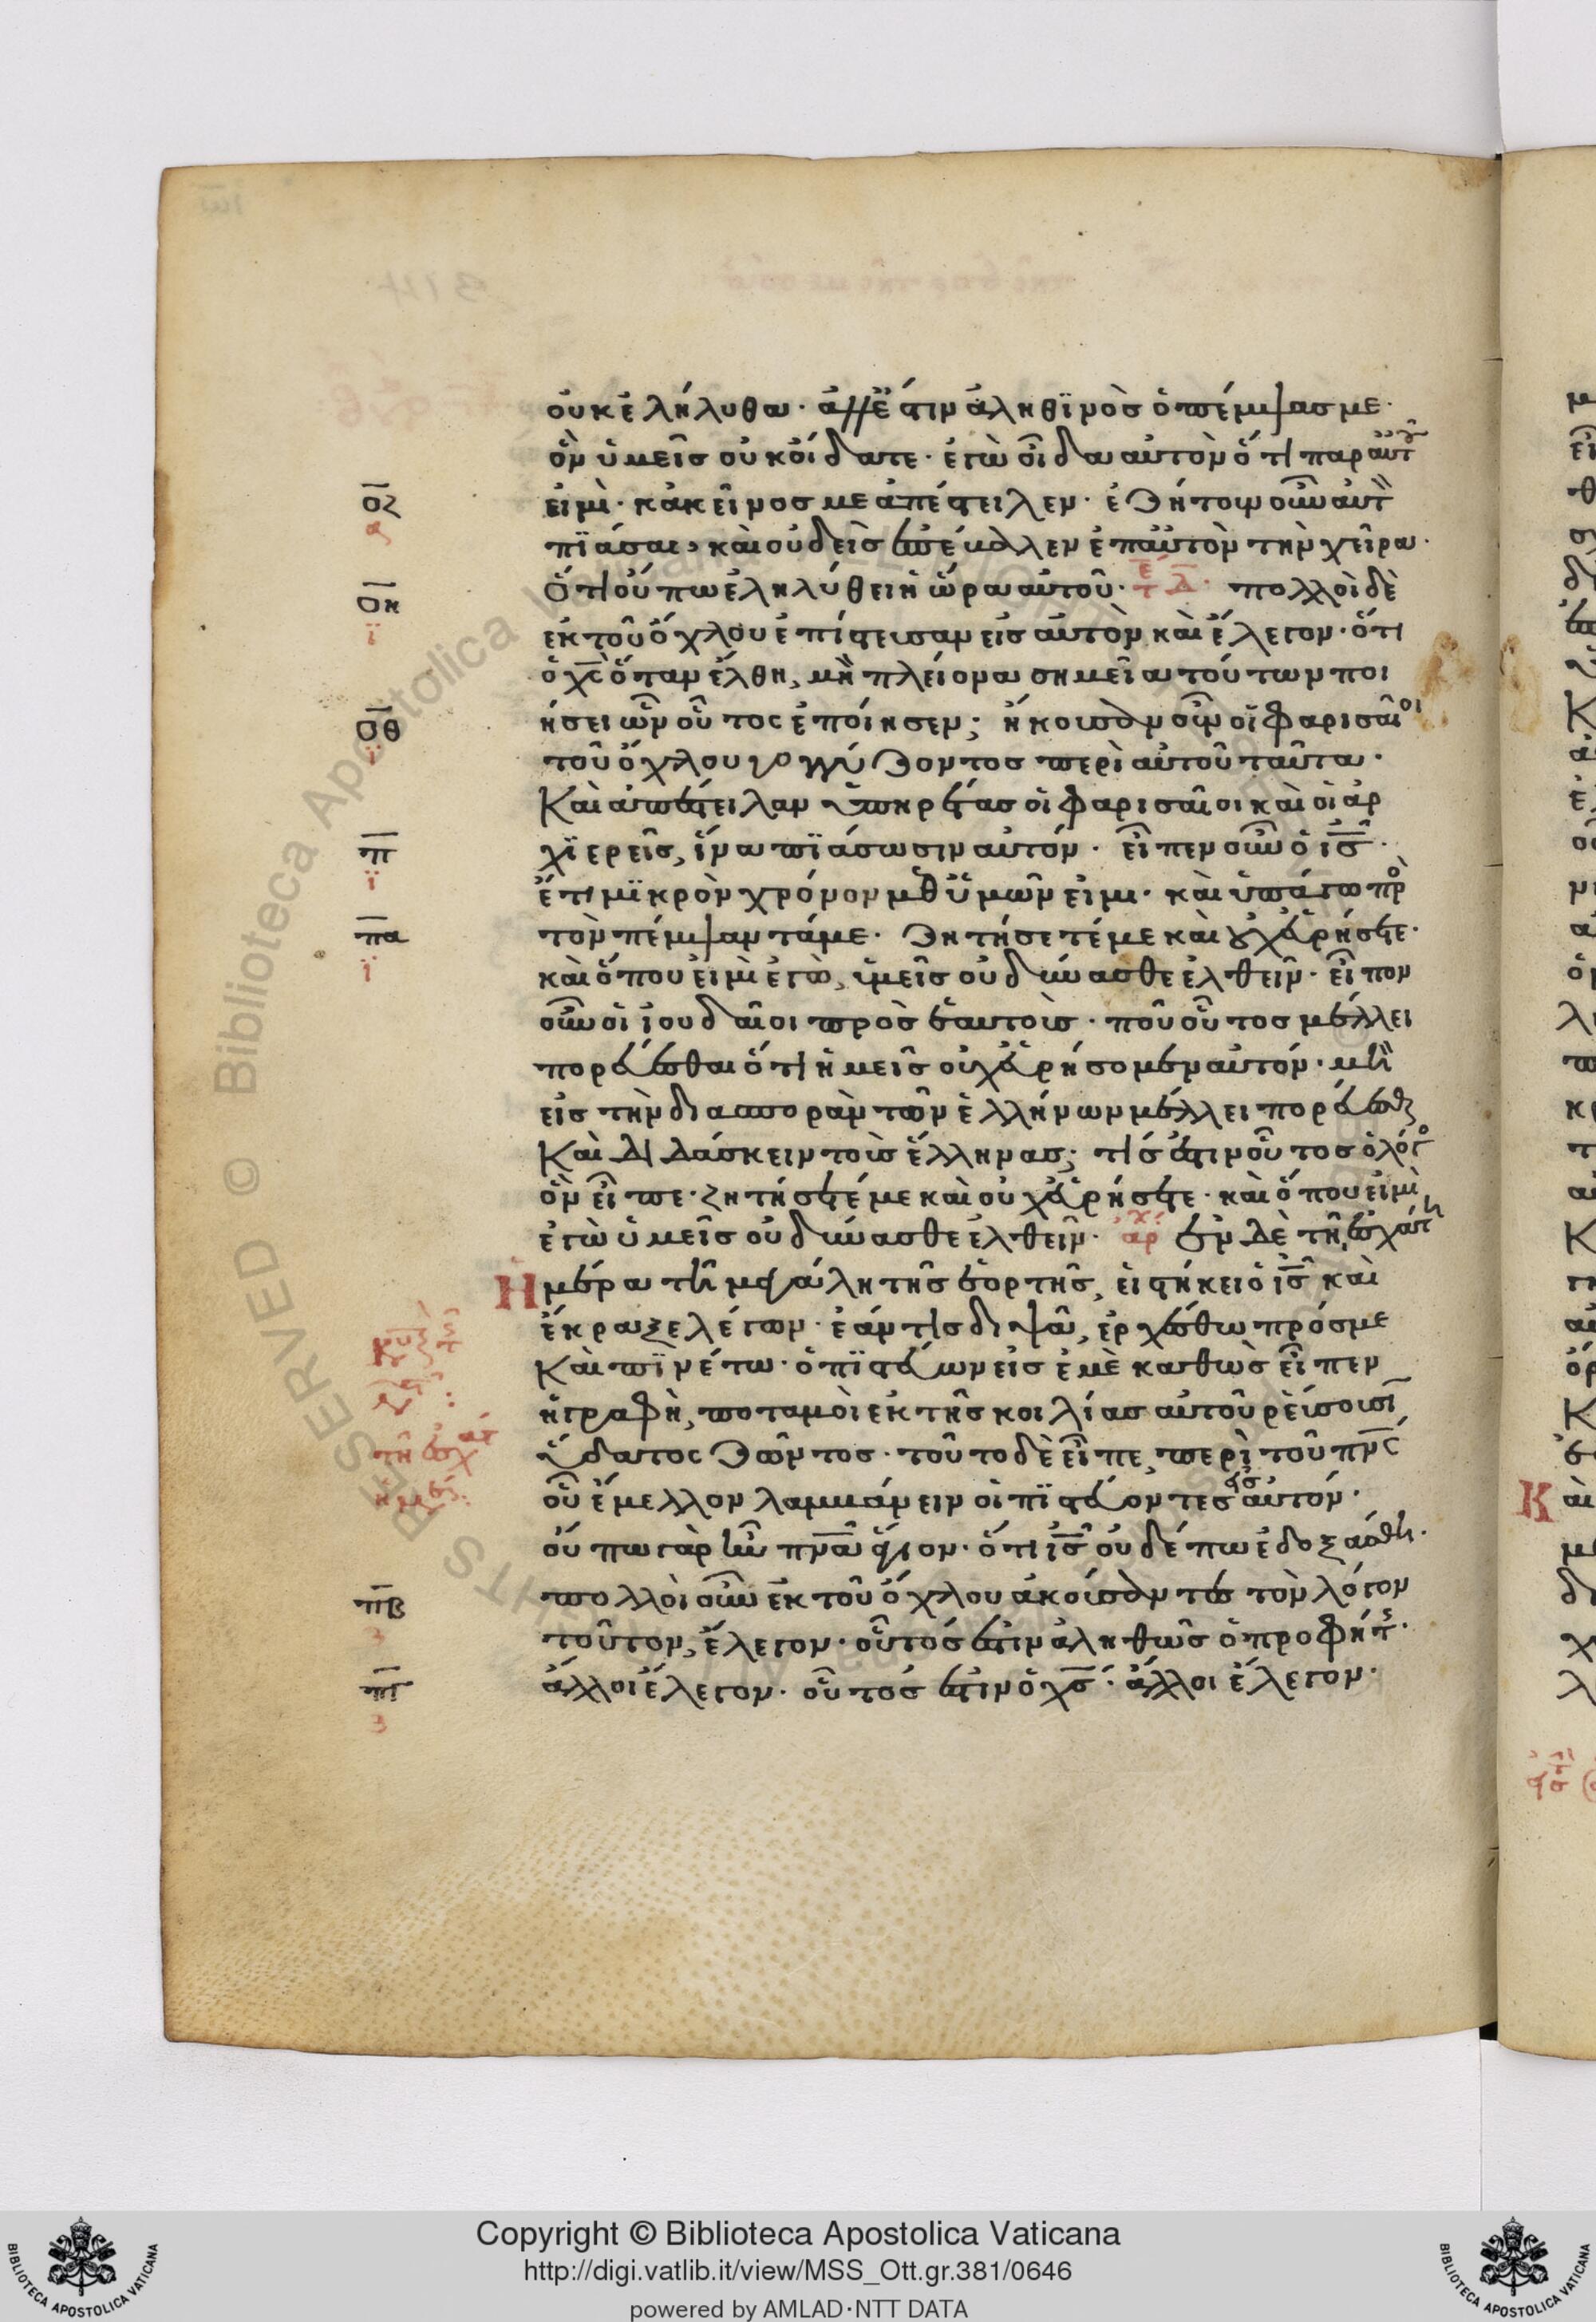 οὐκ ἐλήλυθα· ἀλλ' ἔστιν ἀληθϊνὸσ ὁ πέμψασ με·
ὃν ὑμεῖσ οὐκ οἴδατε· ἐγὼ οἶδα αὐτὸν ὅτι παρ αὐτοῦ
εἰμὶ· κἀκεῖνοσ με ἀπέστειλεν· ἐζήτουν οὖν αὐτὸν
οζ
πϊάσαι, καὶ οὐδεὶσ ἐπέβαλλεν ἐπ αὐτὸν τὴν χεῖρα·
ὅτι οὔπω ἐληλύθει ἡ ὥρα αὐτοῦ· τε δ· πολλοὶ δὲ
οη
ϊ
ἐκ τοῦ ὄχλου ἐπίστευσαν εἰσ αὐτὸν καὶ ἔλεγον· ὅτι
ὁ χς ὅταν ἔλθη, μὴ πλείονα σημεῖα τούτων ποι
ήσει ὧν οὗτος ἐποίησεν; ἤκουσαν οὖν οἱ φαρισαῖοι
οθ
ϊ
τοῦ ὄχλου γογγύζοντοσ περὶ αὐτοῦ ταῦτα·
Καὶ ἀπέστειλαν ὑπηρέτασ οἱ φαρισαῖοι καὶ οἱ ἀρ
χϊερεῖσ, ἵνα πϊάσωσιν αὐτόν· εἶπεν οὖν ὁ ισ·
π
ϊ
ἔτι μϊκρὸν χρόνον μεθ ὑμῶν εἰμι· καὶ ὑπάγω πρὸ
τὸν πέμψαντά με· ζητήσετέ με καὶ οὐχ εὑρήσετε·
πα
ϊ
καὶ ὅπου εἰμὶ ἐγὼ, ὑμεῖσ οὐ δύνασθε ἐλθεῖν· εἶπον
οὖν οἱ ἰουδαῖοι πρὸσ ἑαυτοὺσ· ποῦ οὗτοσ μέλλει
πορεύεσθαι ὅτι ἡμεῖσ οὐχ εὑρήσομεν αὐτόν· μὴ
εἰσ τὴν διασποραν τῶν ἑλλήνων μέλλει πορεύεσθαι
Καὶ διδάσκειν τοὺσ ἕλληνασ; τίσ ἐστιν οὗτοσ ὁ λόγο
ὃν εἶπε· ζητήσετέ με καὶ οὐχ εὑρήσετε· καὶ ὅπου εἰμὶ
ἐγὼ ὑμεῖσ οὐ δύνασθε ἐλθεῖν· ἀρχ ἐν δὲ τῆ ἐσχάτη
Ημέρα τῆ μεγάλη τῆσ ἑορτῆσ, εἱστήκει ὁ ισ καὶ
ἔκραξε λέγων· ἐάν τισ διψᾶ, ἐρχέσθω πρόσ με
Καὶ πϊνέτω· ὁ πϊστεύων εἰσ ἐμὲ καθὼσ εἶπεν
ἡ γραφὴ, ποταμοὶ ἐκ τῆσ κοιλίασ αὐτοῦ ῥεύσουσι
τῆ ἐσχάτ
ἡμέρ:
ὕδατος ζῶντοσ· τοῦτο δὲ εἶπε, περὶ τοῦ πνς
οὗ ἔμελλον λαμβάνειν οἱ πϊστεύοντεσ εἰσ αὐτόν·
οὔπω γὰρ ἦν πνα ἅγιον· ὅτι ισ οὐδέπω ἐδοξάσθη·
πολλοὶ οὖν ἐκ τοῦ ὄχλου ἀκούσαντεσ τὸν λόγον
πβ
τοῦτον, ἔλεγον· οὗτόσ ἐστιν ἀληθῶσ ὁ προφήτ·
ἄλλοι ἔλεγον· οὗτόσ ἐστιν ὁ χσ· ἄλλοι ἔλεγον·
πγ
Copyright © Biblioteca Apostolica Vaticana
http://digi.vatlib.it/view/MSS_Ott.gr.381/0646
powered by AMLAD·NTT DATA